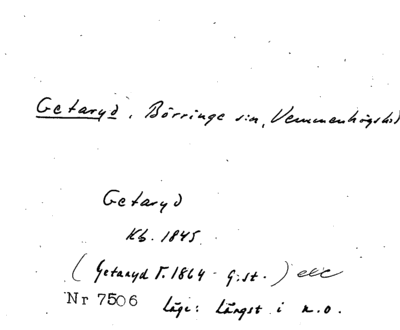 Getaryd, Börringe sn, Vemmenhögs hd
Getaryd
Kb. 1845
(Getaryd T. 1864 G.st.) etc
Nr 7506 Läge: längst i n.o.